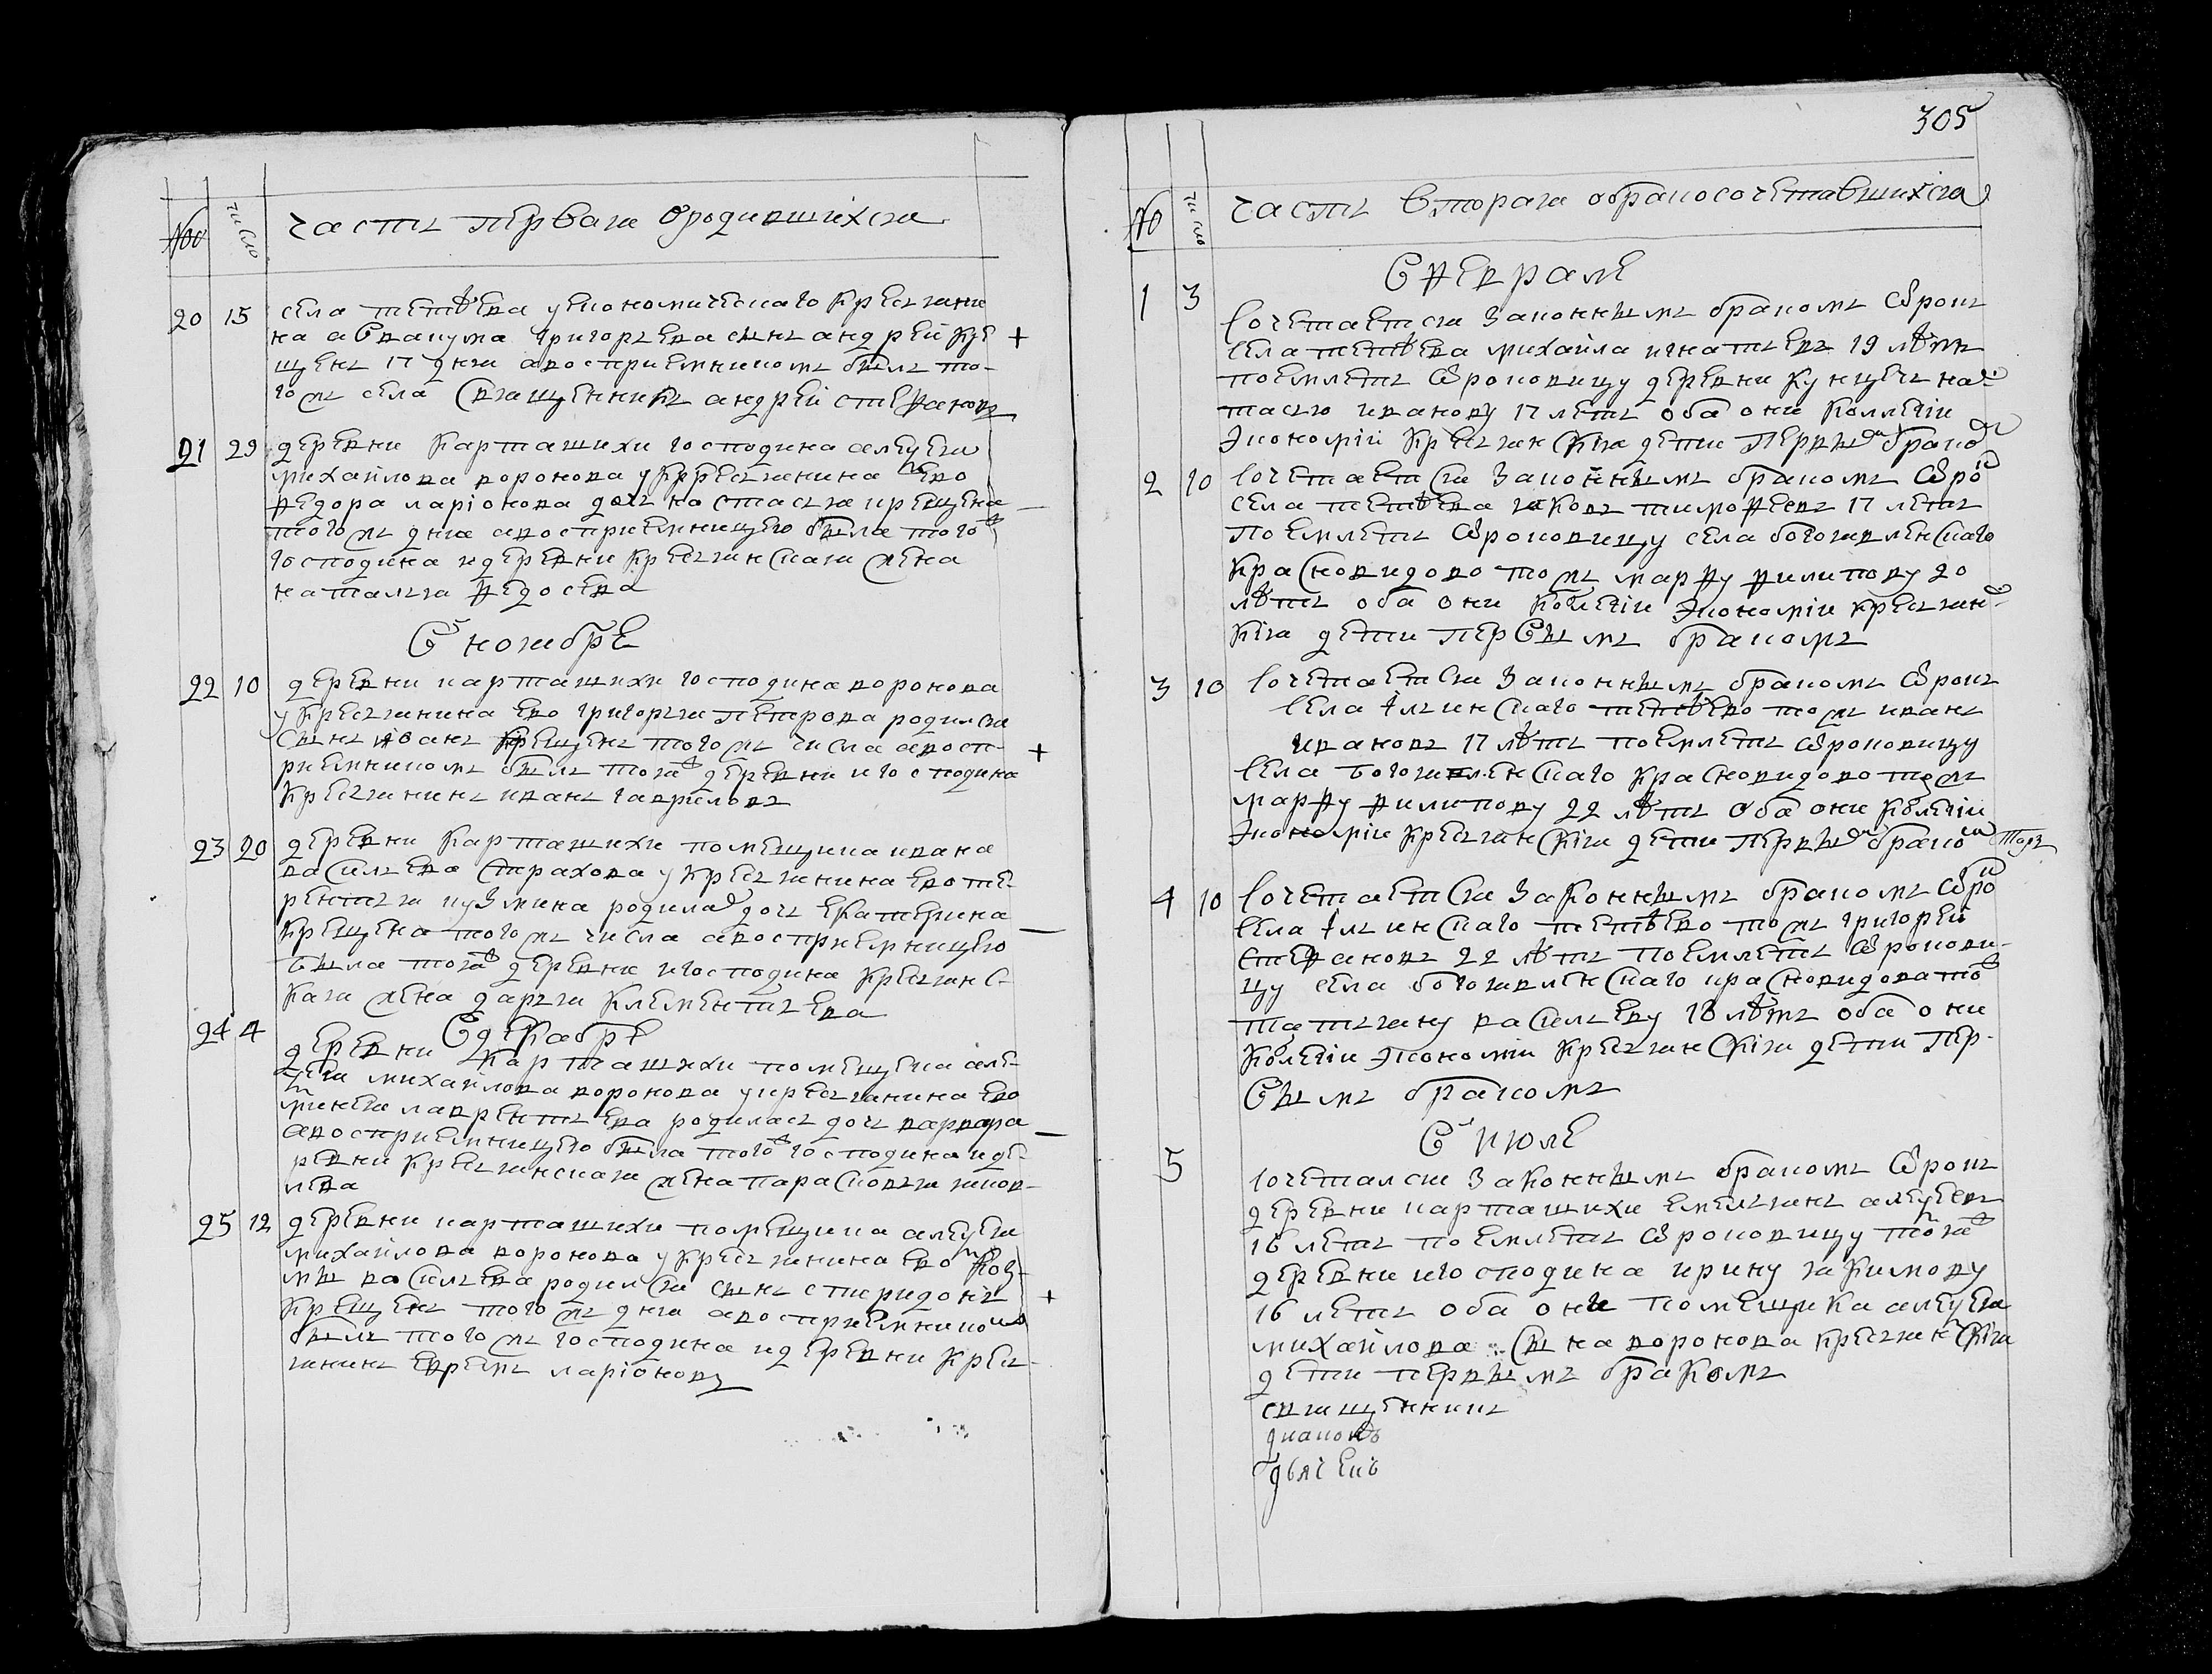 №
число
часть первая о родившихся
20 15 села тетѣева у економического крестьяни
на аввакума григорьева сынъ андрей кре +
щенъ 17 дня а восприемникомъ былъ то-
гожъ села священникъ андрей стефановъ
21 29 деревни карташихи господина алеѯея
михайлова воронова у крестьянина ево
федора ларіонова дочь настасья крещена —
тогожъ дня а восприемницею была того
господина и деревни крестьянская жена
наталья федосѣева
в ноябрѣ
22 10 деревни карташихи господина воронова
у крестьянина ево григорья петрова родился
сынъ иванъ крещенъ тогожъ числа а восп- +
риемникомъ былъ тояж деревни и господина
крестьянинъ иванъ гавриловъ
23 20 деревни карташихи помещика ивана
васильева страхова у крестьянина ево те-
рентья кузмина родилас дочь екатерина
крещена тогожъ числа а восприемницею —
была тояж деревни и господина крестьянс-
кая жена дарья клементьева
24 4 в декабрѣ
деревни карташихи помещика але-
ѯея михайлова воронова у крестьянина ево
минея лаврентьева родилась дочь варвара
а восприемницею была тогож господина и де- —
ревни крестьянская жена парасковья яков-
лева
25 12 деревни карташихи помещика алеѯея
михайлова воронова у крестьянина ево коз-
мы васильева родился сынъ спиридонъ
крещенъ тогожъ дня а восприемником +
былъ тогожъ господина и деревни крест-
янинъ ефремъ ларіоновъ
305
№
число
часть вторая о бракосочетавшихся
в феврале
1 3 сочетается законнымъ бракомъ ѿрокъ
села тетѣева михайла игнатьевъ 19 лѣтъ
поемлетъ ѿроковицу деревни кунцеи нас
тасью иванову 17 летъ оба они коллегіи
экономіи крестьянскія дети первым браком
2 10 сочетается законнымъ бракомъ ѿрок
села тетѣева яковъ тимофеевъ 17 летъ
поемлетъ ѿроковицу села богоявленскаго
красновидово тожъ марфу филипову 20
лѣтъ оба они колегіи экономіи крестьянс
кія дети первымъ бракомъ
3 10 сочетается законнымъ бракомъ ѿрокъ
села ильинскаго тетѣево тожъ иванъ
ивановъ 17 лѣтъ поемлетъ ѿроковицу
села богоявленскаго красновидово тожъ
марфу филипову 22 лѣтъ оба они колегіи
экономіи крестьянскія дети первым браком
4 10 сочетается законнымъ бракомъ ѿрок
села ильинскаго тетѣево тожъ григорей
стефановъ 22 лѣтъ поемлетъ ѿрокови-
цу села богоявленскаго красновидова тож
татьяну васильеву 18 лѣтъ оба они
колегіи экономіи крестьянскія дети пер-
вымъ бракомъ
в июле
5 сочетался законнымъ бракомъ ѿрокъ
деревни карташихи емельянъ алеѯеевъ
16 летъ поемлетъ ѿроковицу тояж
деревни и господина ирину якимову
16 летъ оба они помещика алеѯея
михайлова сына воронова крестьянскія
дети первымъ бракомъ
священникъ
диаконъ
дьячекъ